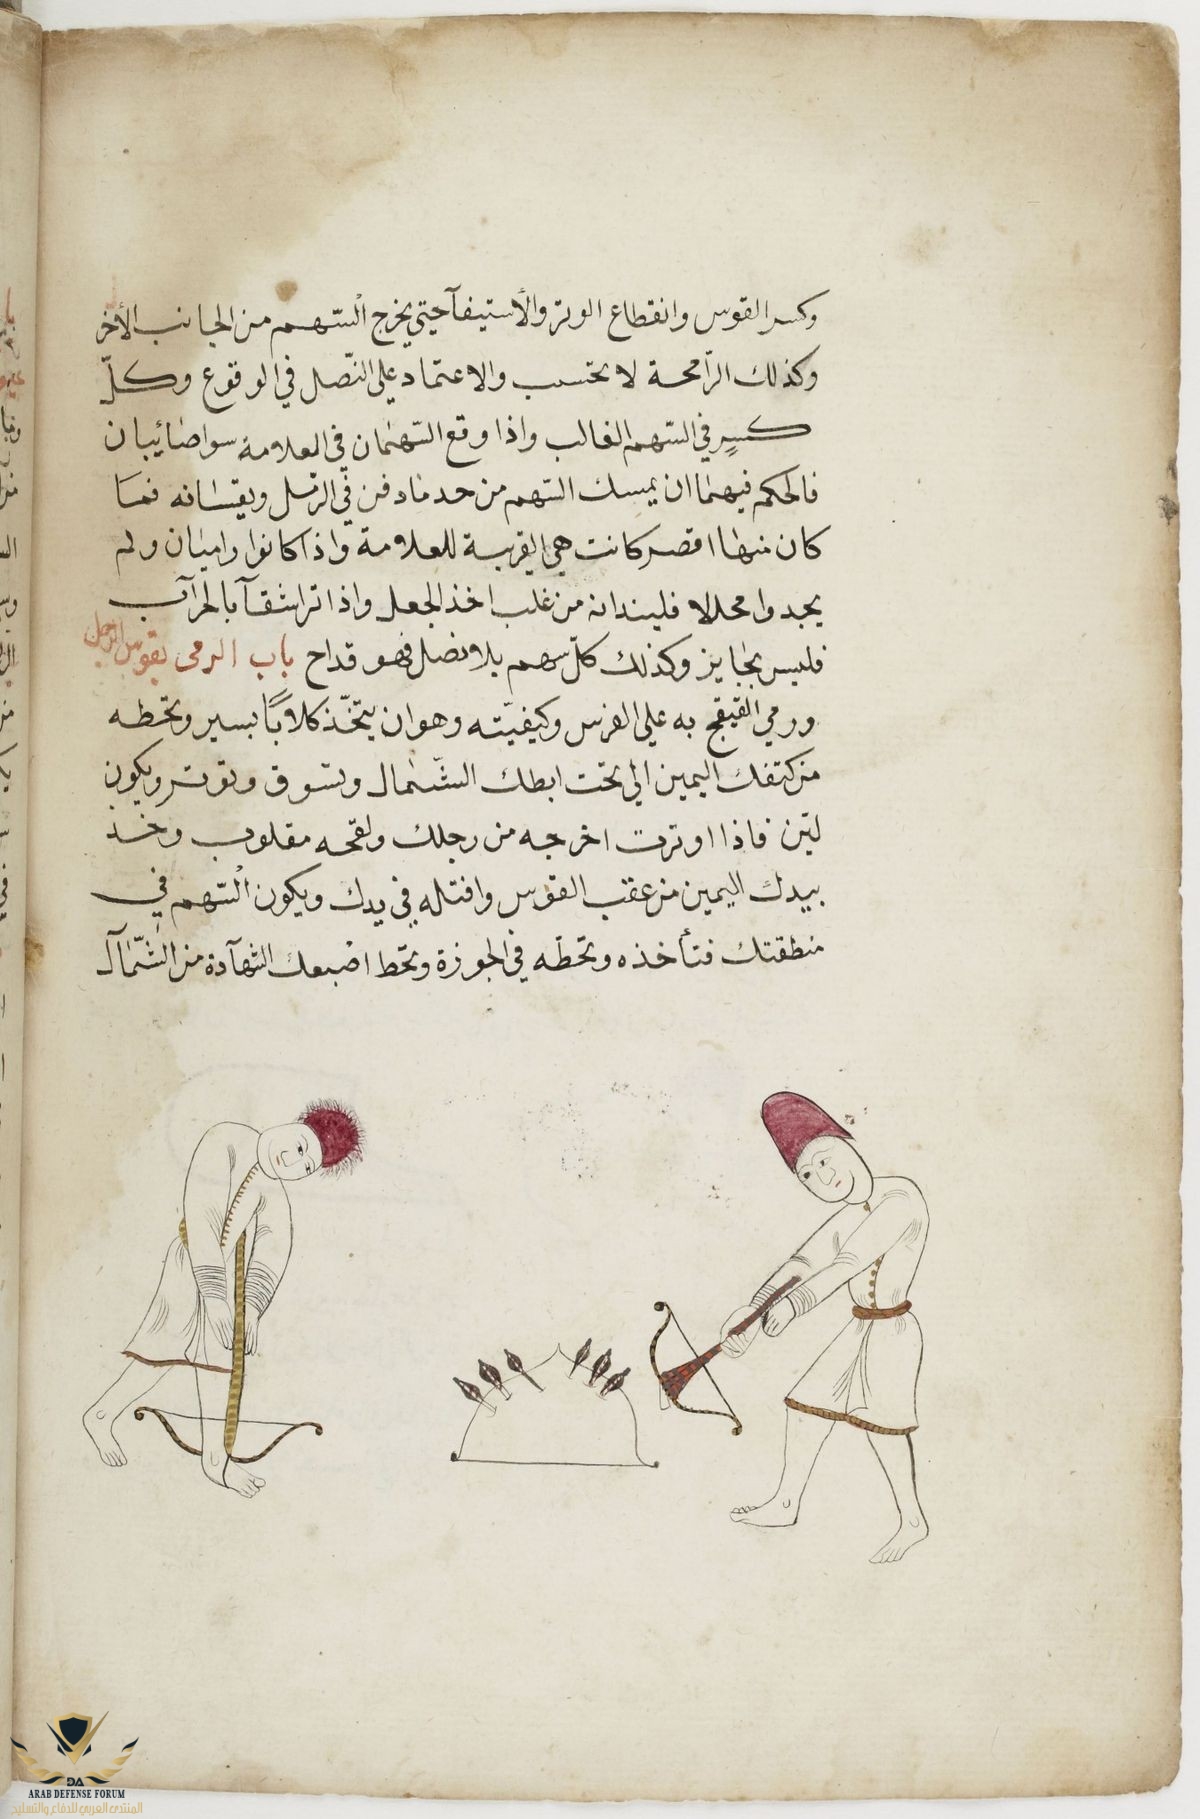 وكسر القوس وانقطاع الوتر والأستيفآ حتي يخرج السّهم من الجانب الأخر
وكذلك الرّامحة لا تحتسب والاعتماد علي النّصل في الوقوع وكلّ
كسير في السّهم الغالب واذا وقع السّهمان في العلامة سوا صائيبان
فالحكم فيهما ان يمسك السّهم من حد ما دفن في الرّمل ويقيسانه فما
كان منها اقصر كانت هي القريبة للعلامة واذا كانوا راميان ولم
يجدوا محللا فليبدانه من غلب اخذ الجعل واذا تراشقآ بالحرآب
فليس بجايز وكذلك كلّ سهم بلا نصل فهو قداح باب الرمى بقوس الرجل
ورمي القيقج به علي الفرس وكيفيّته وهو ان يتخّذ كلاّبًا بسير وتحطه
من كتفك اليمين الي تحت ابطك الشّمال وتسوق وتوتر ويكون
ليّن فاذا اوترت اخرجه من رجلك ولقحه مقلوب وخذ
بيدك اليمين من عقب القوس وافتله في يدك ويكون السّهم في
منطقتك فتأخذه وتحطّه في الجوزة وتحط اصبعك الشهآدة من الشّمآل
ARAB DEFENSE FORUM
المنتدى العربي للدفاع والتسليح